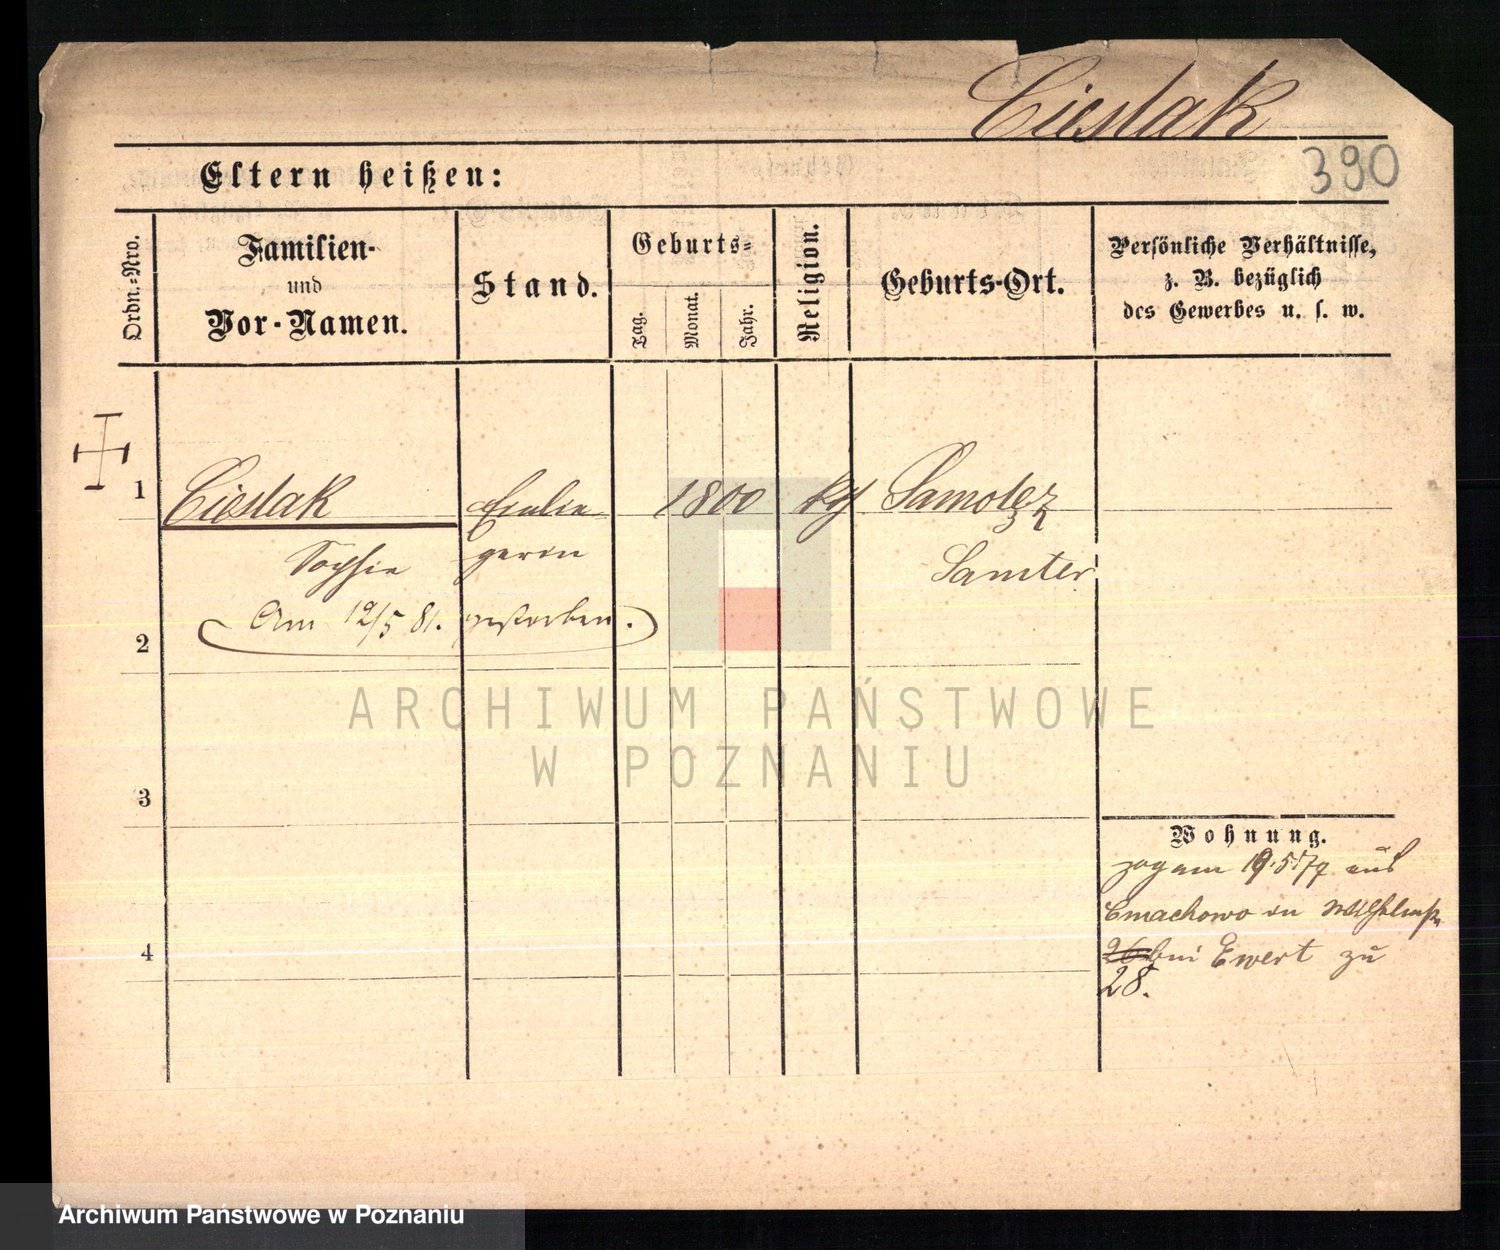 Cieslak
390
Eltern heißen:
Ordn.-Nro.
Familien-
und
Vor-Namen.
Stand.
Geburts-
Tag.
Monat.
Jahr.
Religion.
Geburts-Ort.
Persönliche Verhältnisse,
z. B. bezüglich
des Gewerbes u. s. w.
1
Cieslak
1800
kth
Samter
Sophie
gerin
Am 12/5 81. gestorben.
2
ARCHIWUM PAŃSTWOWE
W POZNANIU
3
Wohnung.
zog am 19.5.77 aus
Cmachowo in Wilhelmstr.
4
26 bei Ewert zu
28.
Archiwum Państwowe w Poznaniu